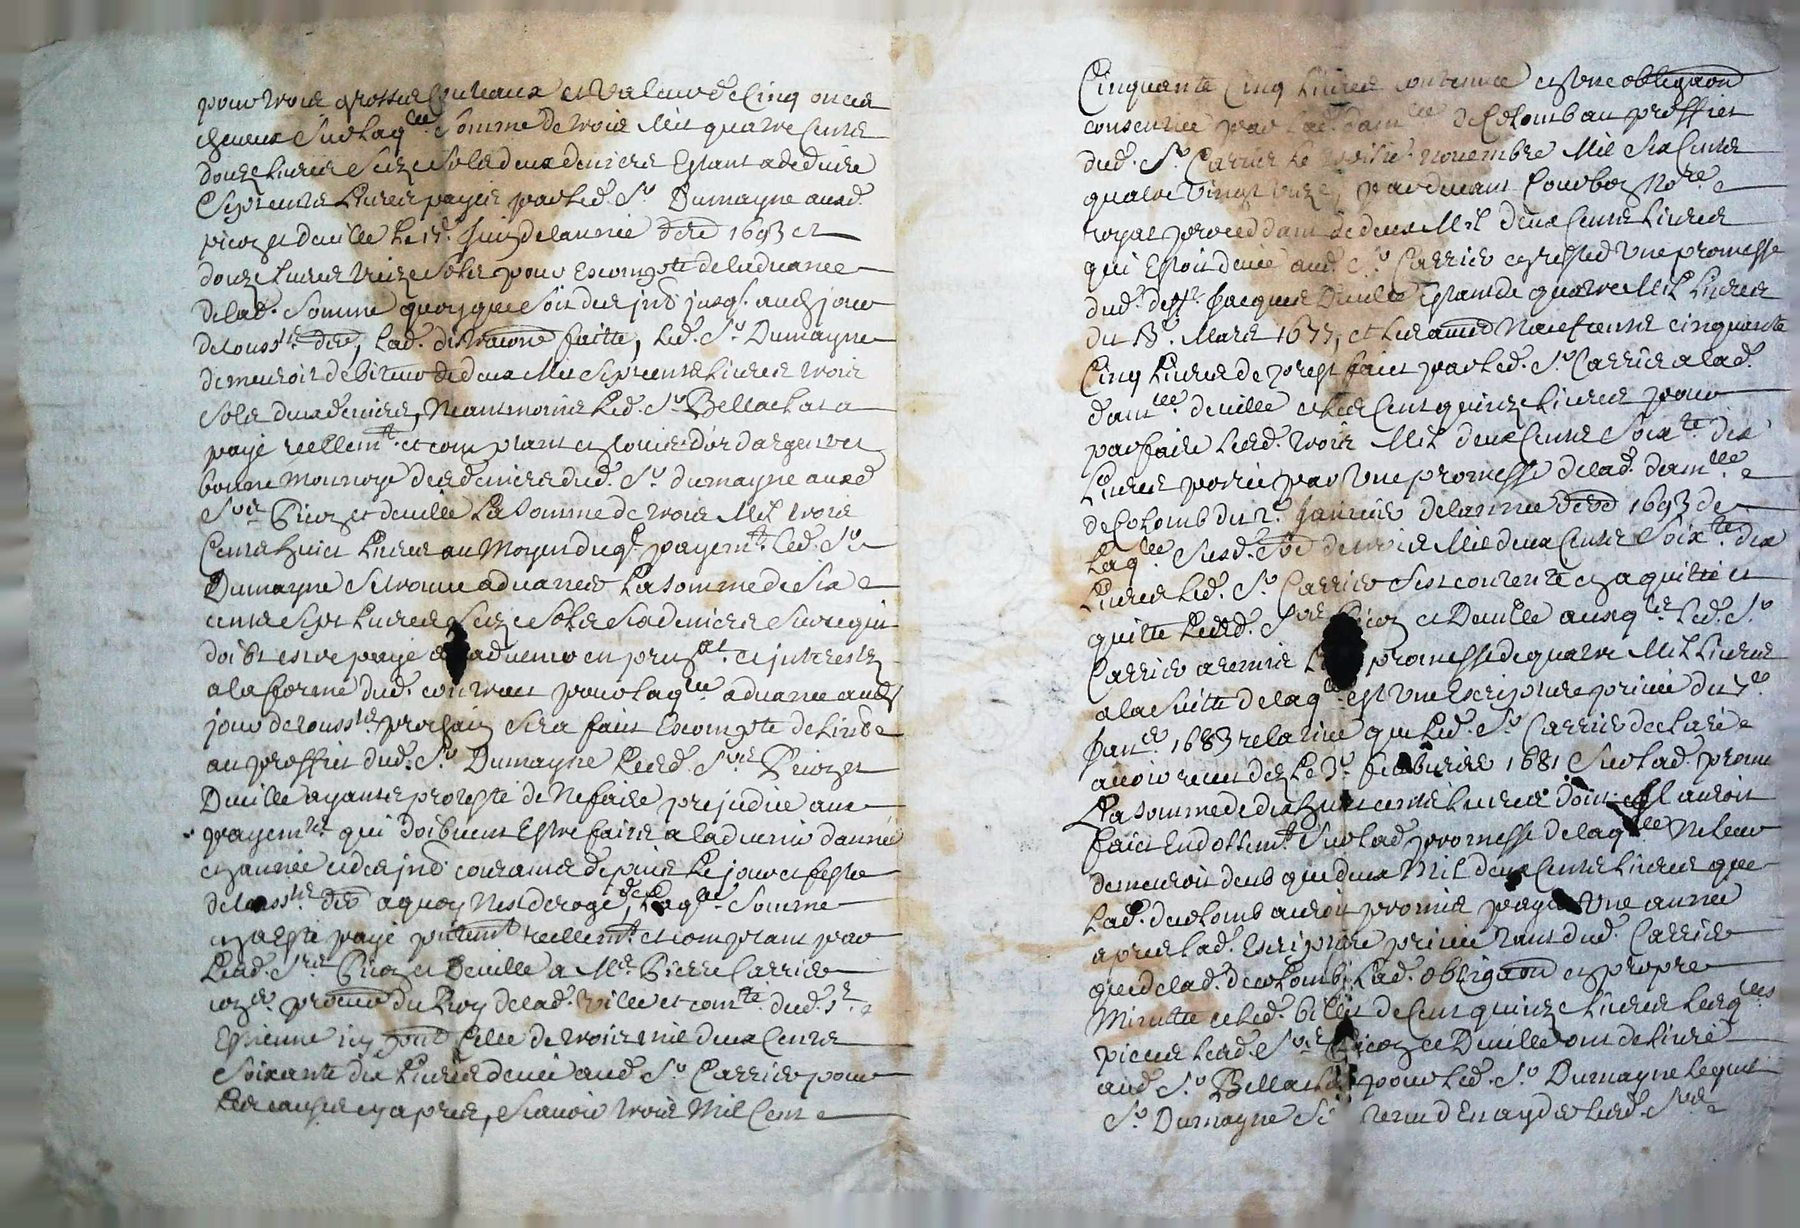 pour trois grosses couteaux et valeur de Cinq onces
cheveux Sur laq^lle Somme de trois Mil quatre Cents
douze Livres Seize Sols deux deniers Estant a deduire
Sept cents Livres payés par led. S^r Dumayne ausd.
picoz et deville Le 15^e Juin de lannée der^e 1693 et
douze Livres treize Sols pour Escompte de ladvance
de lad. Somme quoyque Soit des jusq. au jour
de touss^ts der^e, Lad. distraction faitte, led. S^r Dumayne
demeuroit debiteur de deux Mil Sept cents Livres trois
Sols deux deniers, Neantmoins led. S^r Bellachat a
payé reellem^t et comptant en Louis d'or d'argent et
bonne Monnoye des deniers dud. S^r dumayne ausd
S^rs Picoz et deville La Somme de trois Mil trois
Cents huict Livres au Moyen duq^l payem^t led. S^r
Dumayne Se trouve advancer La somme de Six
cents Sept Livres Seize Sols Six deniers Sur ce qui
doibt estre payé advenir en pnt et interests
a la forme dud. contract pour laq^lle advance aud
jour de touss^ts prochain Sera fait Escompte
au proffict dud. S^r Dumayne Lesd. S^rs Picoz et
Deville ayants protesté de Ne faire prejudice aux
payem^ts qui doibvent Estre faits a ladvenir d'année
en année et des courants depuis Le jour et feste
de touss^ts der^e a quoy N'est derogé, de laq^lle Somme
en a Esté payé reellem^t et comptant par
Lesd. S^rs Picoz et Deville a M^e Pierre Carrier
procureur du Roy de lad. ville et com^té dud. S^t
Estienne icy celle de trois mil deux Cents
Soixante dix Livres deue aud. S^r Carrier pour
Les causes cy apres, Scavoir trois Mil Cent
Cinquante Cinq Livres contenue en une obligaon
consentie par lad. dam^lle de Colomb au proffict
dud. S^r Carrier Le novembre Mil Six Cents
quatre vingt unze, par devant Courbon No^re
royal procedd'ant de deux Mil deux Cents Livres
qui Estoit deue aud. S^r Carrier en reste d'une promesse
dud. deff^t Jacques Deville Estant de quatre Mil Livres
du 18^e Mars 1677, et Les Neuf cents cinquante
Cinq Livres de prest faict par led. S^r Carrier a lad.
dam^lle deville et les Cent quinze Livres pour
parfaire Lesd. trois Mil deux Cents Soix^te dix
Livres portée par Une promesse de lad. dam^lle
de Colomb du 2^e Janvier de lannée der^e 1693 de
Laq^lle Susd. de trois Mil deux Cents Soix^te dix
Livres led. S^r Carrier S'est contenté en a quitté et
quitte Lesd. S^rs Picoz et Deville ausq^ls led. S^r
Carrier a remis promesse de quatre Mil Livres
a la Suitte de laq^lle est Une Escripture privée du 7^e
Janv^r 1683 relative que led. S^r Carrier declare
avoir receu dez le 3^e febvrier 1681 Sur lad. promesse
La somme de dix huit cents Livres dont il auroit
faict Endossem^t Sur lad. promesse de laq^lle Ne leur
demeuroit deub que deux Mil deux Cents Livres que
Lad. de colomb auroit promis payer Une année
apres lad. Escripture privée tant dud. Carrier
que de lad. de colomb, Lad. obligaon en propre
Minutte et led. billet de Cent quinze Livres Lesq^lles
pieces Lesd. S^rs Picoz et Deville ont delivré
aud. S^r Bellachat pour led. S^r Dumayne Lequel
S^r Dumayne lesd. S^rs